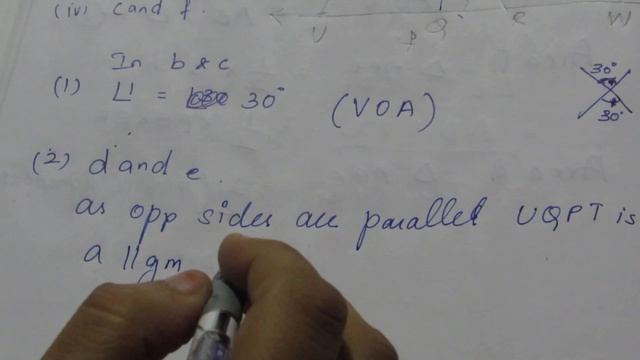 (iv) c and f.
V P Q e W
In b & c
(1) L1 = 30° (VOA)
30°
30°
(2) d and e.
as opp sides are parallel UQPT is
a llgm